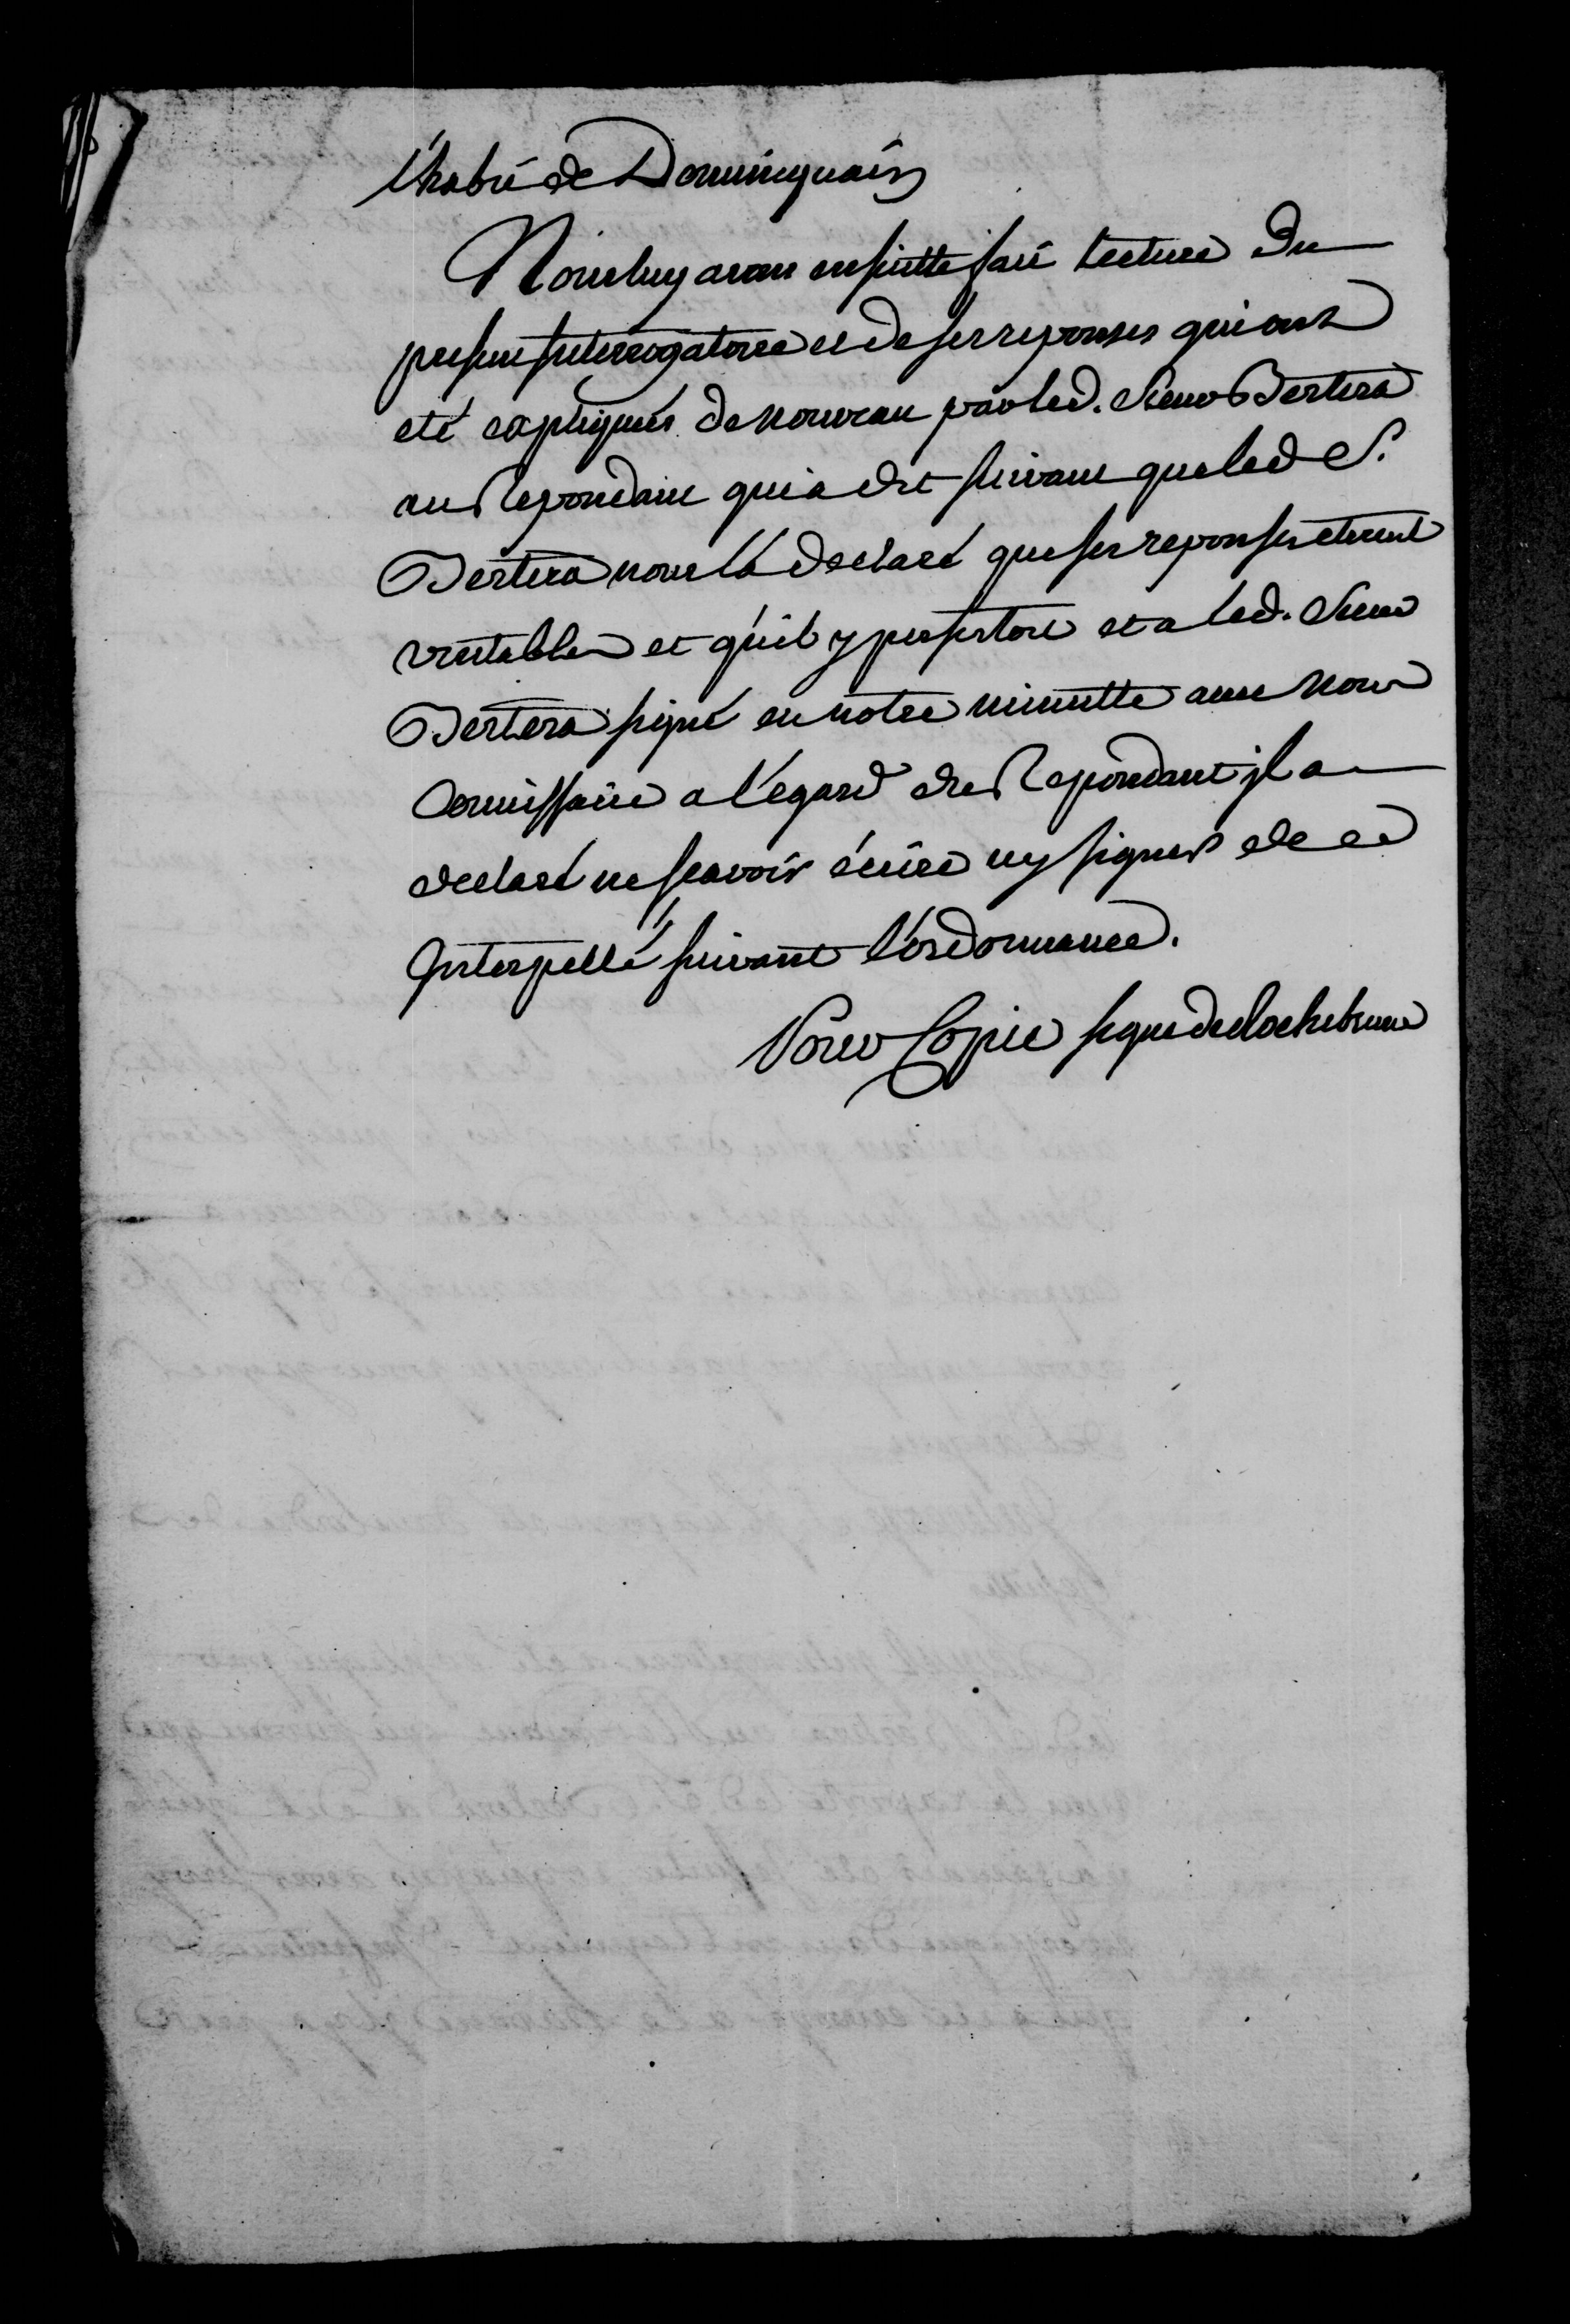 l'habit de Dominiquain
Nous luy avons ensuitte fait Lecture du
present Interrogatoire et de ses reponses qui ont
eté expliqués de nouveau par led. Sieur Bertera
au Repondant qui a dit suivant que led S.
Bertera nous l'a declaré que ses reponses etoient
veritables et qu'il y persistoit et a led. Sieur
Bertera signé en notre minutte avec nous
Commissaire a l'egard du Repondant il a
declaré ne scavoir écrire ny signer de ce
Interpellé suivant l'ordonnance.
Pour Copie signé de Rochebrune